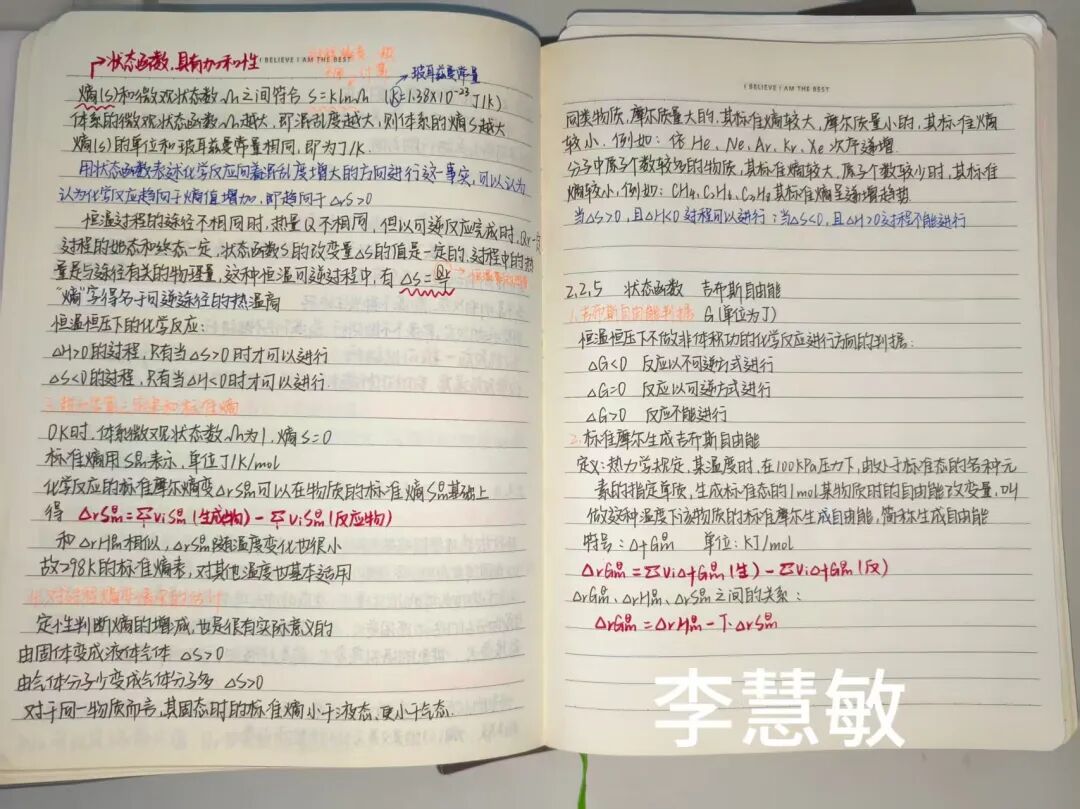 状态函数,具有加和性
I BELIEVE I AM THE BEST
玻耳兹曼常量
熵(S)和微观状态数Ω之间符合 S=klnΩ (k=1.38×10⁻²³ J/K)
体系的微观状态函数Ω越大,即混乱度越大,则体系的熵S越大
熵(S)的单位和玻耳兹曼常量相同,即为J/K.
用状态函数表述化学反应向着混乱度增大的方向进行这一事实,可以认为
认为化学反应趋向于熵值增加,即趋向于ΔrS>0
恒温过程的途径不相同时,热量Q不相同,但以可逆反应完成时,Qr一定
过程的始态和终态一定,状态函数S的改变量ΔS的值是一定的,过程中的热
量是与途径有关的物理量,这种恒温可逆过程中,有 ΔS=Qr/T
"熵"字得名于可逆途径的热温商
恒温恒压下的化学反应:
ΔH>0的过程,只有当ΔS>0时才可以进行
ΔS<0的过程,只有当ΔH<0时才可以进行.
和标准熵
0K时,体系微观状态数Ω为1,熵S=0
标准熵用S⊖m表示,单位J/K/mol
化学反应的标准摩尔熵变ΔrS⊖m可以在物质的标准熵S⊖m基础上
得 ΔrS⊖m=ΣviS⊖m(生成物)-ΣviS⊖m(反应物)
和ΔrH⊖m相似,ΔrS⊖m随温度变化也很小
故298K的标准熵表,对其他温度也基本适用
4.对过程熵变情况的估计
定性判断熵的增减,也是很有实际意义的
由固体变成液体气体 ΔS>0
由气体分子少变成气体分子多 ΔS>0
对于同一物质而言,其固态时的标准熵小于液态,更小于气态.
I BELIEVE I AM THE BEST
同类物质,摩尔质量大的,其标准熵较大,摩尔质量小的,其标准熵
较小. 例如: 依He、Ne、Ar、Kr、Xe次序递增.
分子中原子个数较多的物质,其标准熵较大,原子个数较少时,其标准
熵较小,例如: CH4,C2H6,C3H8其标准熵呈递增趋势
当ΔS>0,且ΔrH<0过程可以进行;当ΔS<0,且ΔH>0过程不能进行
2.2.5 状态函数 吉布斯自由能
1.吉布斯自由能判据 G(单位为J)
恒温恒压下不做非体积功的化学反应进行方向的判据:
ΔG<0 反应以不可逆方式进行
ΔG=0 反应以可逆方式进行
ΔG>0 反应不能进行
2.标准摩尔生成吉布斯自由能
定义:热力学规定,某温度时,在100kPa压力下,由处于标准态的各种元
素的指定单质,生成标准态的1mol某物质时的自由能改变量,叫
做这种温度下该物质的标准摩尔生成自由能,简称生成自由能
符号:ΔfG⊖m 单位:KJ/mol
ΔrG⊖m=ΣviΔfG⊖m(生)-ΣviΔfG⊖m(反)
ΔrG⊖m、ΔrH⊖m、ΔrS⊖m之间的关系:
ΔrG⊖m=ΔrH⊖m-T·ΔrS⊖m
李慧敏